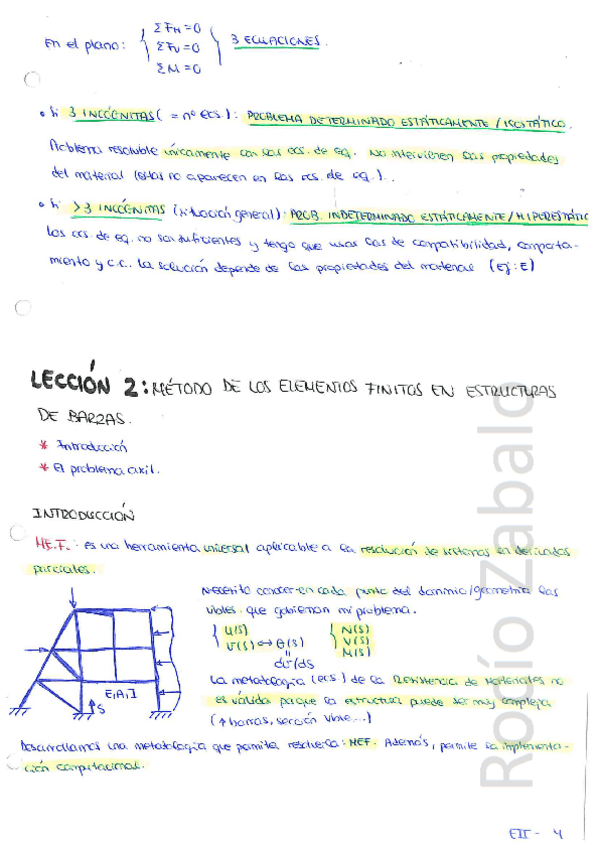 En el plano: { ΣFH=0 ΣFV=0 ΣM=0 } 3 ECUACIONES.
• Si 3 INCÓGNITAS ( = nº ecs.): PROBLEMA DETERMINADO ESTÁTICAMENTE / ISOSTÁTICO.
Problema resoluble únicamente con las ecs. de eq. No intervienen las propiedades
del material (estas no aparecen en las ecs. de eq.)..
• Si >3 INCÓGNITAS (situación general): PROB. INDETERMINADO ESTÁTICAMENTE/HIPERESTÁTIC
Las ecs. de eq. no son suficientes y tengo que usar las de compatibilidad, comporta-
miento y c.c.. La solución depende de las propiedades del material (Ej: E)
LECCIÓN 2: MÉTODO DE LOS ELEMENTOS FINITOS EN ESTRUCTURAS
DE BARRAS.
* Introducción
* El problema axil.
INTRODUCCIÓN
M.E.F.: es una herramienta universal aplicable a la resolución de sistemas en derivadas
parciales.
Necesito conocer en cada punto del dominio/geometría las
vbles. que gobiernan mi problema.
{ u(s) { N(s)
v(s) ↔ θ(s) V(s)
= M(s)
dv/ds
La metodología (ecs.) de la Resistencia de Materiales no
es válida porque la estructura puede ser muy compleja
(↑ barras, sección vble...)
E, A, I
S
Desarrollamos una metodología que permita resolverla: MEF. Además, permite la implementa-
ción computacional.
Rocío Zabalo
EII - 4